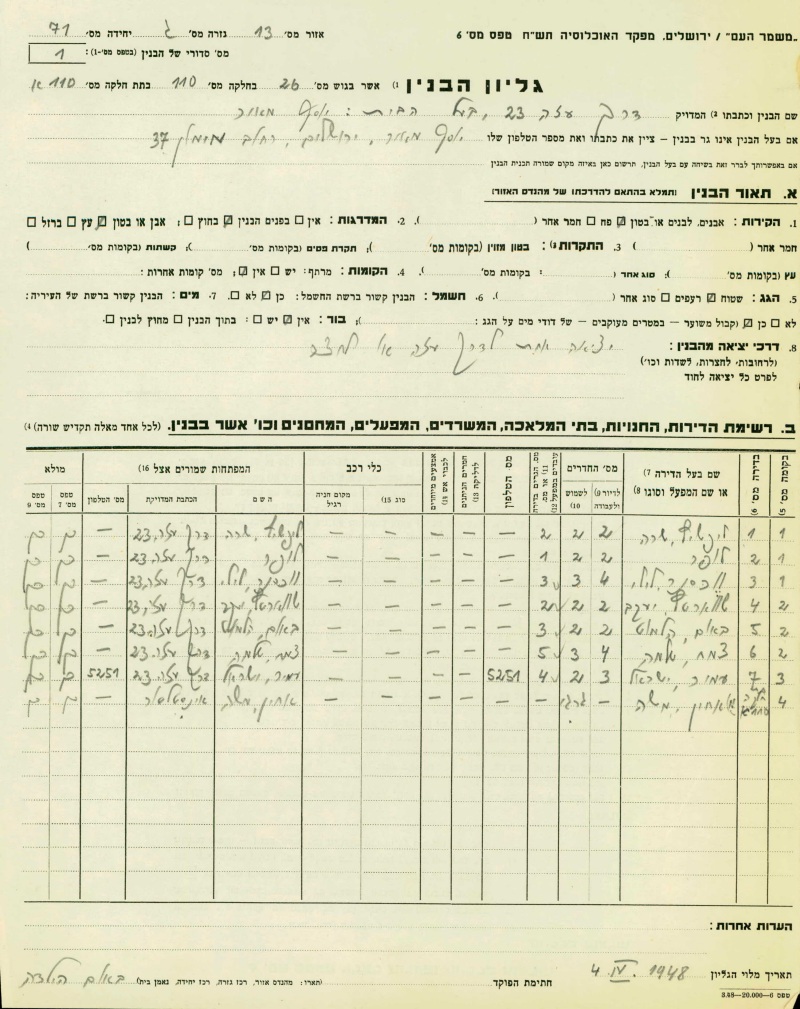 „משמר העם" / ירושלים, מפקד האוכלוסיה תש"ח טפס מס' 6
אזור מס' 13 גזרה מס' ג יחידה מס' 71
מס' סדורי של הבנין (בטפס מס' 1–): 1
גליון הבנין 1) אשר בגוש מס' 26 בחלקה מס' 110 בתת חלקה מס' 110 א
שם הבנין וכתבתו 2) המדויק דרך עזה 23, בעל הבית: יוסף מאור
אם בעל הבנין אינו גר בבנין – ציין את כתבתו ואת מספר הטלפון שלו יוסף מאור, ירושלים, רחוב 37
אם באפשרותך לברר זאת בשיחה עם בעל הבנין, תרשום כאן באיזה מקום שמורה תכנית הבנין
א. תאור הבנין (תמלא בהתאם להדרכתו של מהנדס האזור)
1. הקירות: אבנים, לבנים או בטון ☑ פח ☐ חמר אחר ( ). 2. המדרגות: אין ☐ בפנים הבנין ☑ בחוץ ☐; אבן או בטון ☑ עץ ☐ ברזל ☐
חמר אחר ( ) 3. התקרות 3): בטון מזוין (בקומות מס' ); תקרת פסים (בקומות מס' ); קשתות (בקומות מס' )
עץ (בקומות מס' ); סוג אחד ( : בקומות מס' ). 4. הקומות: מרתף: יש ☐ אין ☑; מס' קומות אחרות:
5. הגג: שטוח ☑ רעפים ☐ סוג אחר ( ). 6. חשמל: הבנין קשור ברשת החשמל: כן ☑ לא ☐. 7. מים: הבנין קשור ברשת של העיריה:
לא ☐ כן ☑ (קבול משוער – במטרים מעוקבים – של דודי מים על הגג: ); בור: אין ☑ יש ☐: בתוך הבנין ☐ מחוץ לבנין ☐.
8. דרכי יציאה מהבנין: יציאה אחת לדרך עזה או לחצר
(לרחובות, לחצרות, לשדות וכו')
לפרט כל יציאה לחוד
ב. רשימת הדירות, החנויות, בתי המלאכה, המשרדים, המפעלים, המחסנים וכו' אשר בבנין. (לכל אחד מאלה תקדיש שורה) 4)
בקומה מס' 5) בדירה מס' 6) שם בעל הדירה 7) או שם המפעל וסוגו 8) מס' החדרים לדיור 9) ולעבודה לשמוש 10) מס. הגרים בדירה 11) או מס. עובדים במפעל 12) מס הטלפון חמרים הניתנים לדליקה 13) אמצעים מיוחדים לכבוי אש 14) כלי רכב סוג 15) מקום חניה רגיל המפתחות שמורים אצל 16) השם הכתבת המדויקת מס' הטלפון מולא טפס מס' 7 טפס מס' 9
1 1 שרה 2 2 2 – – – – – שרה דרך עזה, 23 – כן כן
1 2 לופר 2 2 1 – – – – – לופר דרך עזה, 23 – כן כן
1 3 וכסנר, לילי 4 3 3 – – – – – וכסנר, לילי דרך עזה, 23 – כן כן
2 4 שווארטץ, יעקב 2 2 2 – – – – – שווארטץ, יעקב דרך עזה, 23 – כן כן
2 5 באום, 2 2 3 – – – – – באום, דרך עזה, 23 – כן כן
2 6 צמח, שלמה 4 3 5 – – – – – צמח, שלמה דרך עזה, 23 – כן כן
3 7 עמיר, ישראל 3 2 4 5251 – – – – עמיר, ישראל דרך עזה, 23 5251 כן כן
4 משה – – – – – – משה – כן כן
הערות אחרות:
תאריך מלוי הגליון 4 IV. 1948 חתימת הפוקד (תארו: מהנדס אזור, רכז גזרה, רכז יחידה, נאמן בית) באום הילדה
טפס 6—20.000—3.48